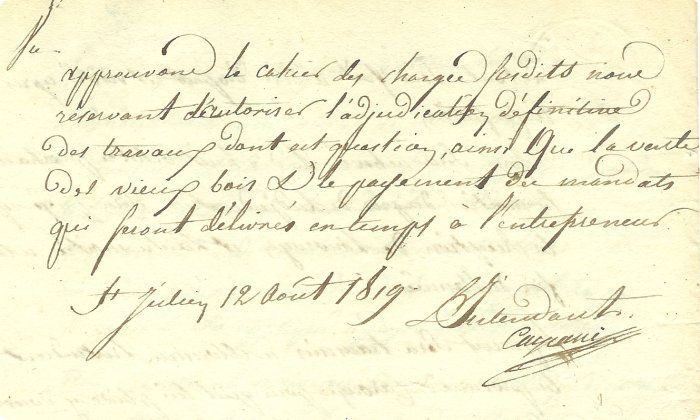 Vu
approuvons le cahier des charges susdits nous
reservant d'autoriser l'adjudication définitive
des travaux dont est question, ainsi Que la vente
des vieux bois & le payement des mandats
qui seront délivrés en temps a l'entrepreneur.
St Julien 12 Août 1819
L'Intendant.